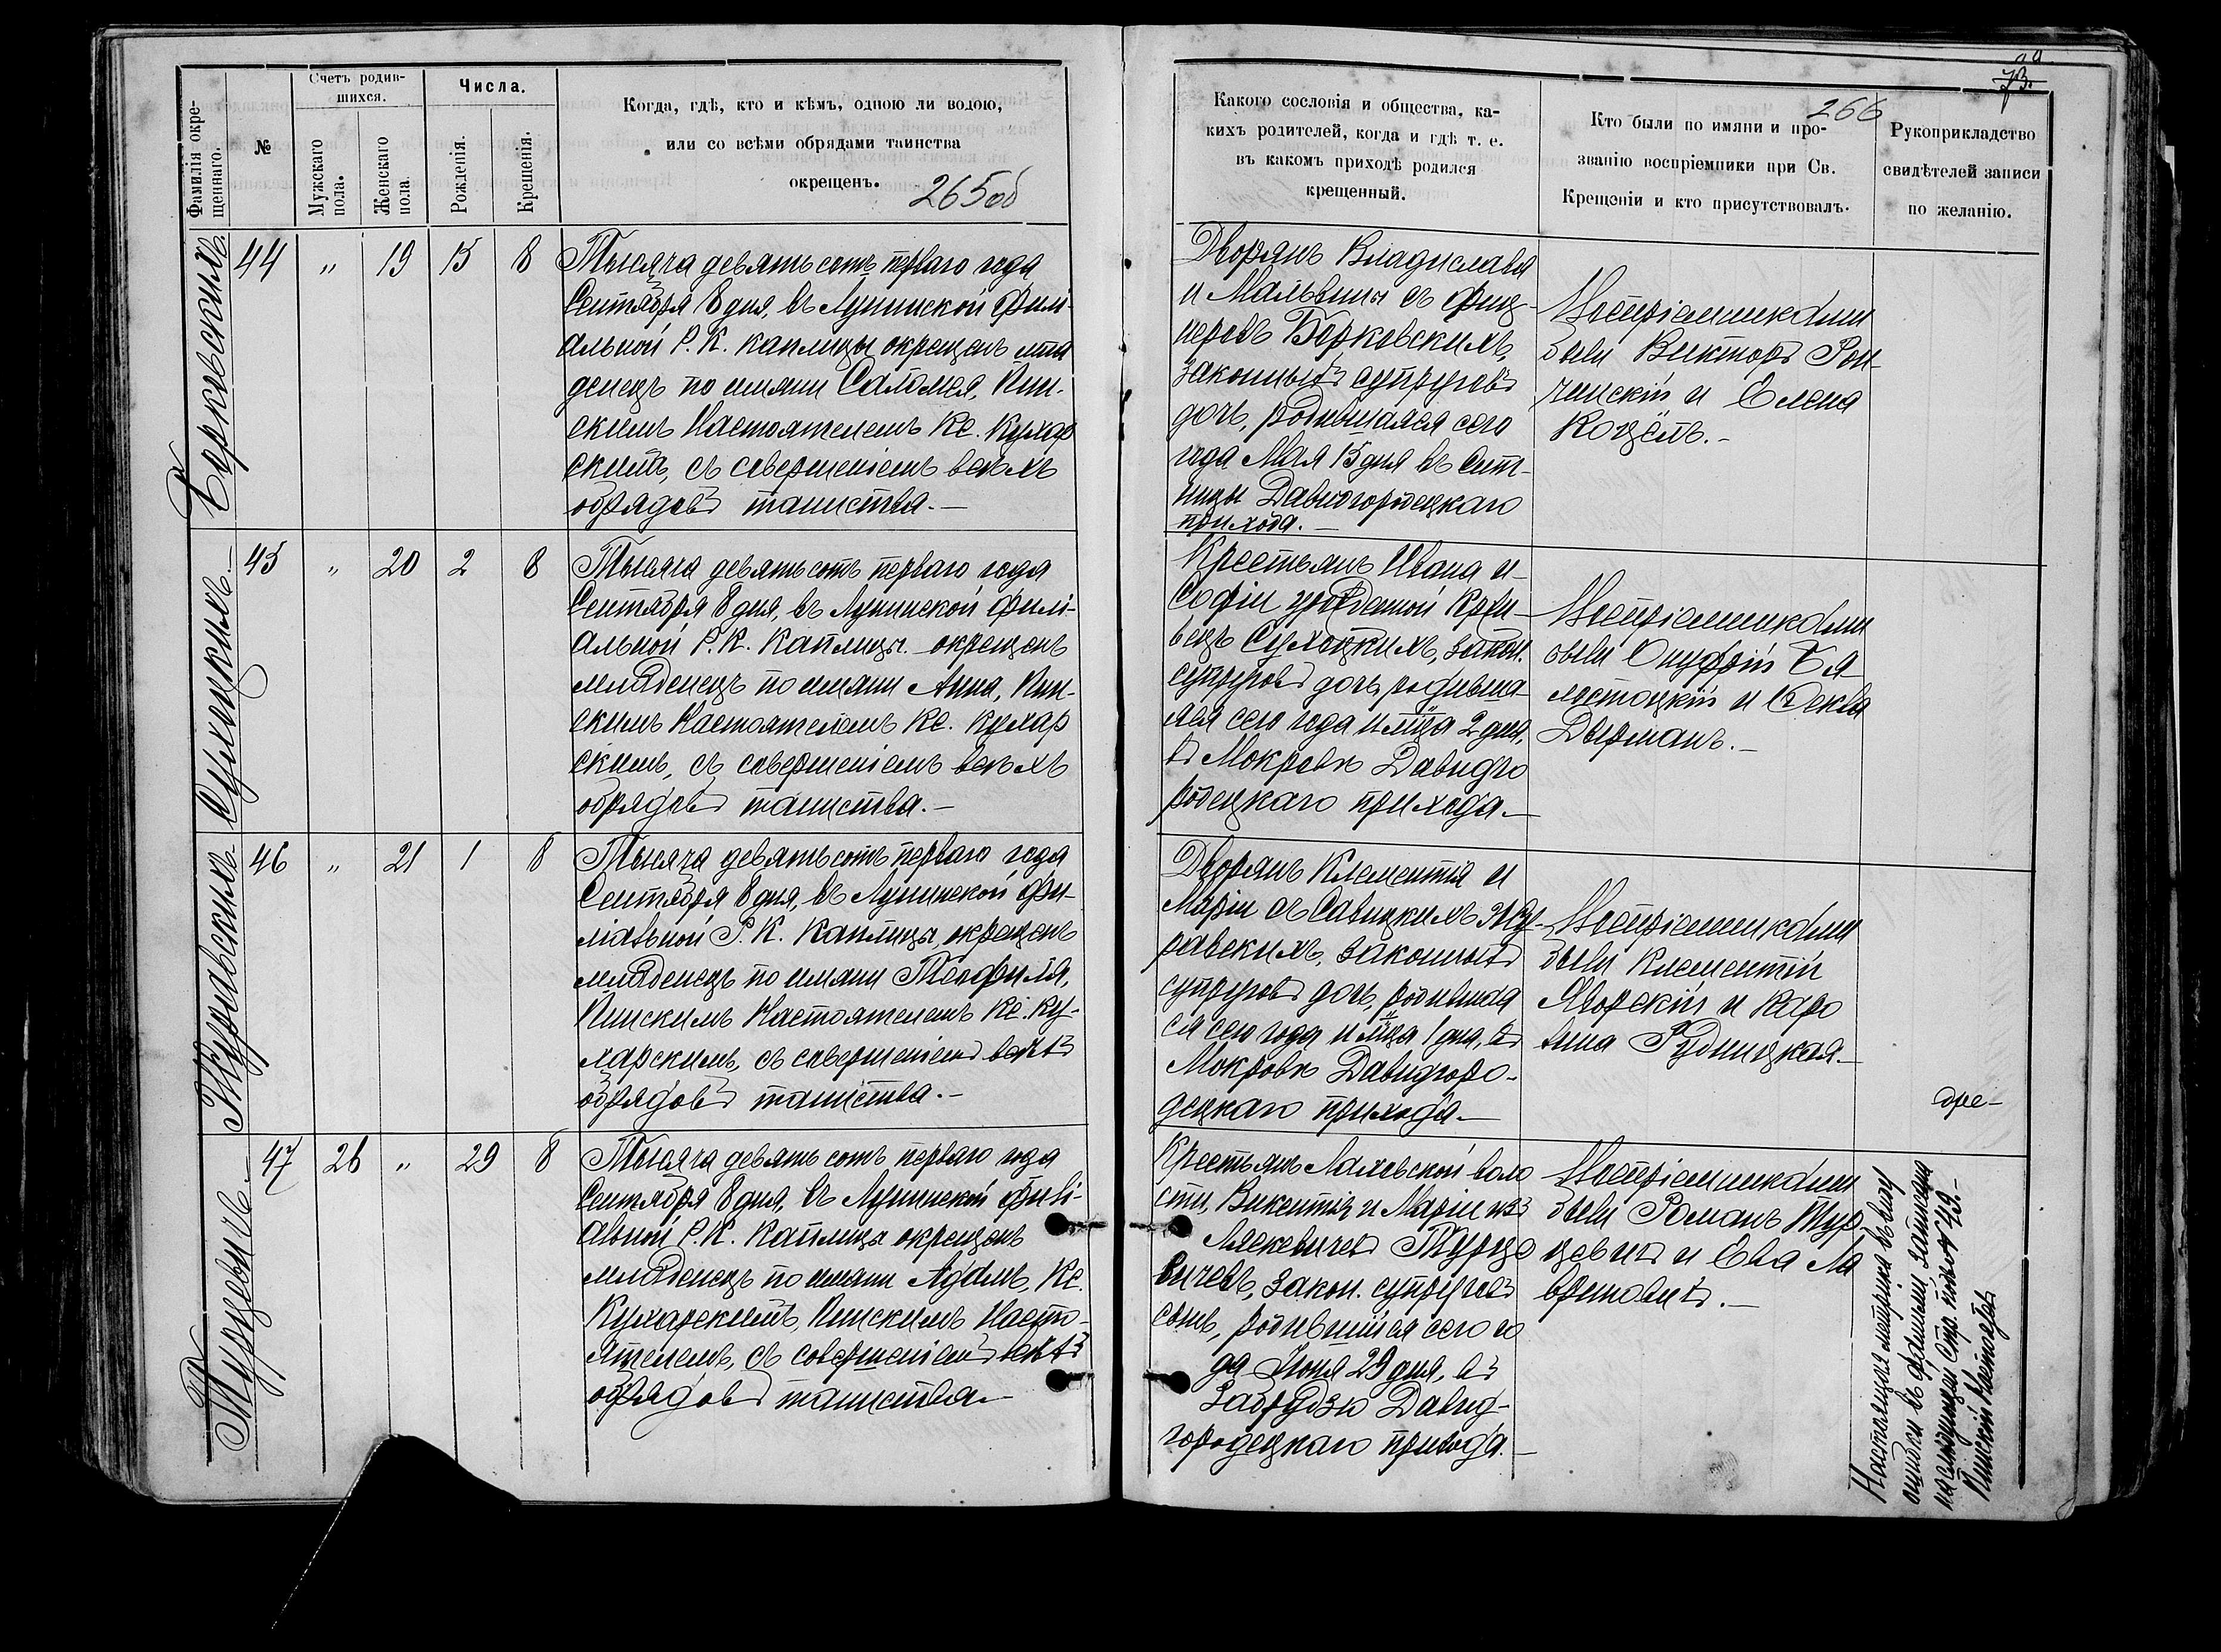 Фамилія окре-
щеннаго.
№
Счетъ родив-
шихся.
Мужскаго
пола.
Женскаго
пола.
Числа.
Рожденія.
Крещенія.
Когда, гдѣ, кто и кѣмъ, одною ли водою,
или со всѣми обрядами таинства
окрещенъ.
265об
Борковскихъ
44 " 19 15 8
Тысяча девятьсотъ перваго года
Сентября 8 дня, въ Лунинской Филі-
альной Р. К. каплицы окрещенъ мла
денецъ по имяни Саломея, Пин-
скимъ Настоятелемъ Кс. Кухар
скимъ, съ совершеніемъ всѣхъ
обрядовъ таинства.—
Сухоцкихъ—
45 " 20 2 8
Тысяча девятьсотъ перваго года
Сентября 8 дня, въ Лунинской филі-
альной Р. К. Каплицы окрещенъ
младенецъ по имяни Анна, Пин-
скимъ Настоятелемъ Кс. Кухар
скимъ, съ совершеніемъ всѣхъ
обрядовъ таинства.—
Журавскихъ
46 " 21 1 8
Тысяча девятьсотъ перваго года
Сентября 8 дня, въ Лунинской фи-
ліальной Р. К. Каплицы, окрещенъ
младенецъ по имяни Теофиля,
Пинскимъ Настоятелемъ Кс. Ку-
харскимъ, съ совершеніемъ всѣхъ
обрядовъ таинства.—
Турцевичъ—
47 26 " 29 8
Тысяча девятьсотъ перваго года
Сентября 8 дня, въ Лунинской филі-
альной Р. К. Каплицы окрещенъ
младенецъ по имяни Адамъ, Кс.
Кухарскимъ, Пинскимъ Насто-
ятелемъ, съ совершеніемъ всѣхъ
обрядовъ таинства—
73.
266
Какого сословія и общества, ка-
кихъ родителей, когда и гдѣ т. е.
въ какомъ приходѣ родился
крещенный.
Кто были по имяни и про-
званію воспріемники при Св.
Крещеніи и кто присутствовалъ.
Рукоприкладство
свидѣтелей записи
по желанію.
Дворянъ Владислава
и Мальвины съ Фиц-
неровъ Борковскихъ,
законныхъ супруговъ
дочь, родившаяся сего
года Мая 15 дня въ Сит-
ницы Давидгородецкаго
прихода.—
Воспріемниками
были Викторъ Рон-
чинскій и Елена
Коцёлъ.—
Крестьянъ Ивана и
Софіи урожденной Криви-
вецъ Сухоцкихъ, закон.
супруговъ дочь, родивша-
яся сего года и мца 2 дня,
въ Мокровѣ Давидго
родецкаго прихода.—
Воспріемниками
были Онуфрій Бя-
лостоцкій и Ѳекла
Дырманъ.—
Дворянъ Клементія и
Маріи съ Савицкихъ Жу-
равскихъ, законныхъ
супруговъ дочь, родившая
ся сего года и мца 1 дня, въ
Мокровѣ Давидгоро-
децкаго прихода—
Воспріемниками
были Клементій
Яворскій и Каро
лина Рудницкая.—
Крестьянъ Лаховской воло
сти, Викентія и Маріи изъ
Ляскевичевъ Турце
вичевъ, закон. супруговъ
сынъ, родившійся сего го
да Іюня 29 дня, въ
Забрудзю Давид-
городецкаго прихода.—
Воспріемниками
были Романъ Тур
цевичъ и Ева Ла
вриновичъ.—
Настоящая метрика въ виду
ошибки въ фамиліи, записана
на слѣдующей стр. подъ № 49.—
Пинскій Настоятель